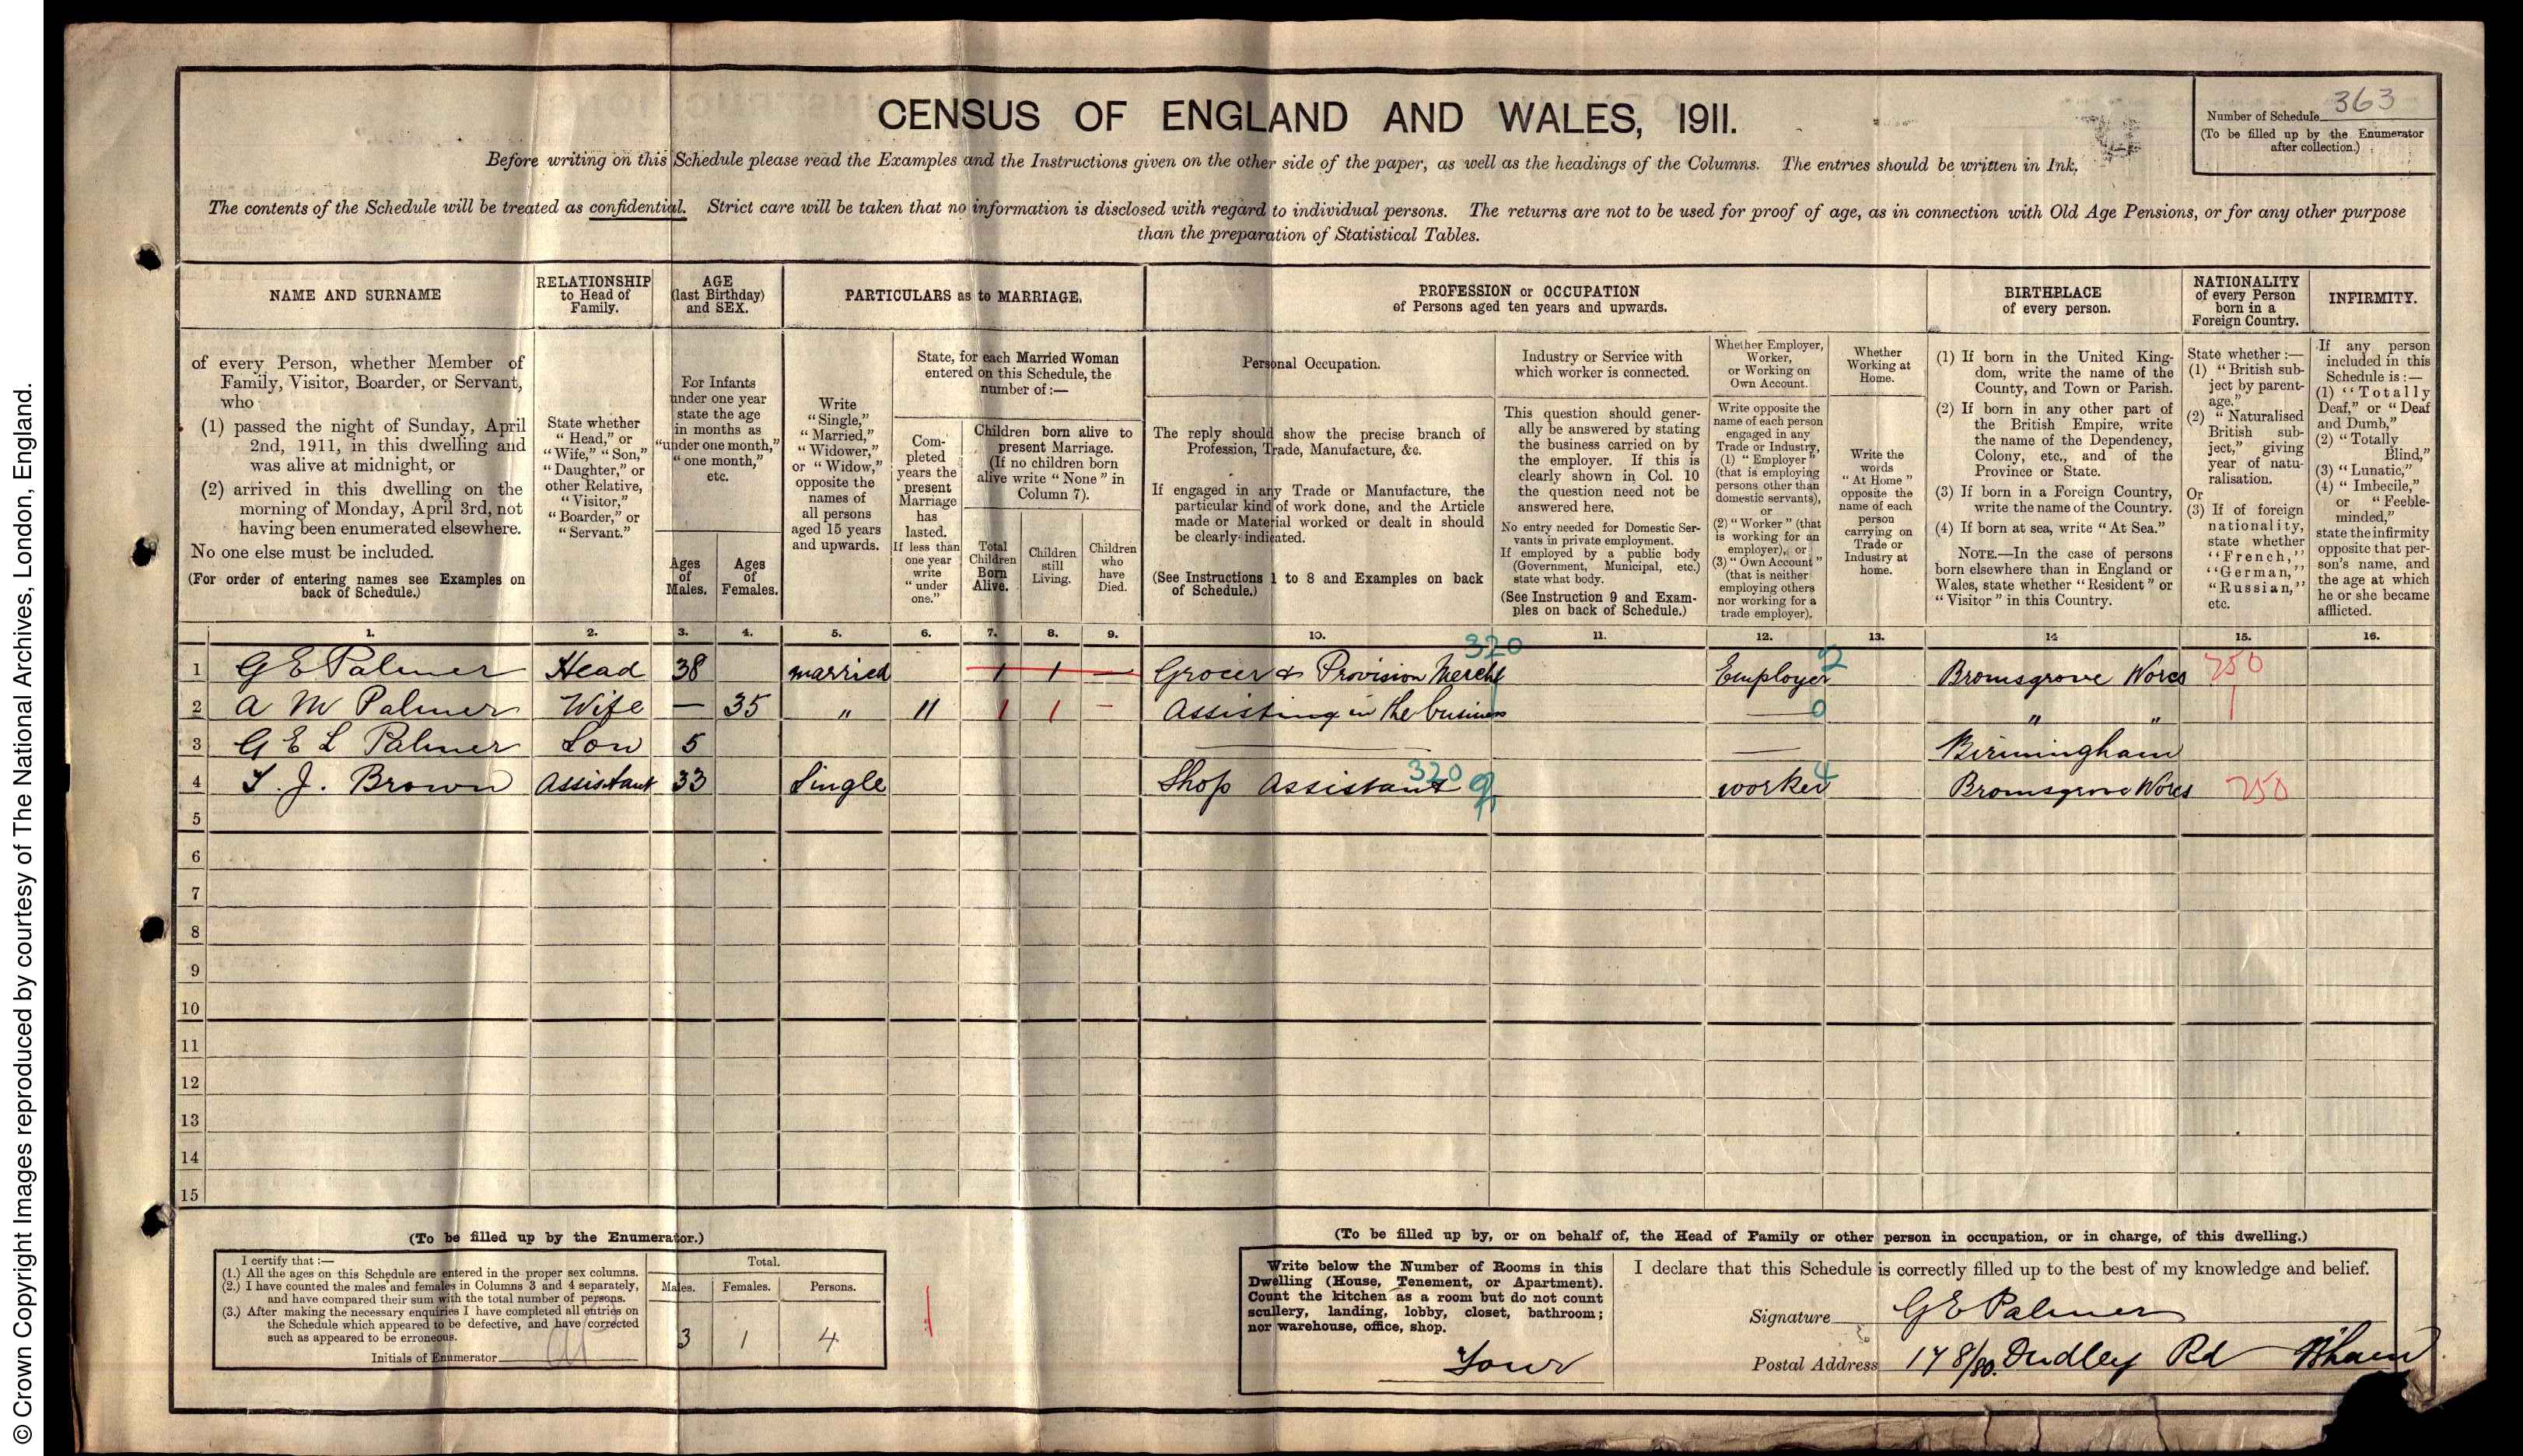 © Crown Copyright Images reproduced by courtesy of The National Archives, London, England.
CENSUS OF ENGLAND AND WALES, 1911.
Number of Schedule 363
(To be filled up by the Enumerator
after collection.)
Before writing on this Schedule please read the Examples and the Instructions given on the other side of the paper, as well as the headings of the Columns. The entries should be written in Ink.
The contents of the Schedule will be treated as confidential. Strict care will be taken that no information is disclosed with regard to individual persons. The returns are not to be used for proof of age, as in connection with Old Age Pensions, or for any other purpose
than the preparation of Statistical Tables.
NAME AND SURNAME
of every Person, whether Member of
Family, Visitor, Boarder, or Servant,
who
(1) passed the night of Sunday, April
2nd, 1911, in this dwelling and
was alive at midnight, or
(2) arrived in this dwelling on the
morning of Monday, April 3rd, not
having been enumerated elsewhere.
No one else must be included.
(For order of entering names see Examples on
back of Schedule.)
RELATIONSHIP
to Head of
Family.
State whether
"Head," or
"Wife," "Son,"
"Daughter," or
other Relative,
"Visitor,"
"Boarder," or
"Servant."
AGE
(last Birthday)
and SEX.
For Infants
under one year
state the age
in months as
"under one month,"
"one month,"
etc.
Ages
of
Males.
Ages
of
Females.
PARTICULARS as to MARRIAGE.
Write
"Single,"
"Married,"
"Widower,"
or "Widow,"
opposite the
names of
all persons
aged 15 years
and upwards.
State, for each Married Woman
entered on this Schedule, the
number of:—
Com-
pleted
years the
present
Marriage
has
lasted.
If less than
one year
write
"under
one."
Children born alive to
present Marriage.
(If no children born
alive write "None" in
Column 7).
Total
Children
Born
Alive.
Children
still
Living.
Children
who
have
Died.
PROFESSION or OCCUPATION
of Persons aged ten years and upwards.
Personal Occupation.
The reply should show the precise branch of
Profession, Trade, Manufacture, &c.
If engaged in any Trade or Manufacture, the
particular kind of work done, and the Article
made or Material worked or dealt in should
be clearly indicated.
(See Instructions 1 to 8 and Examples on back
of Schedule.)
Industry or Service with
which worker is connected.
This question should gener-
ally be answered by stating
the business carried on by
the employer. If this is
clearly shown in Col. 10
the question need not be
answered here.
No entry needed for Domestic Ser-
vants in private employment.
If employed by a public body
(Government, Municipal, etc.)
state what body.
(See Instruction 9 and Exam-
ples on back of Schedule.)
Whether Employer,
Worker,
or Working on
Own Account.
Write opposite the
name of each person
engaged in any
Trade or Industry,
(1) "Employer"
(that is employing
persons other than
domestic servants),
or
(2) "Worker" (that
is working for an
employer), or
(3) "Own Account"
(that is neither
employing others
nor working for a
trade employer).
Whether
Working at
Home.
Write the
words
"At Home"
opposite the
name of each
person
carrying on
Trade or
Industry at
home.
BIRTHPLACE
of every person.
(1) If born in the United King-
dom, write the name of the
County, and Town or Parish.
(2) If born in any other part of
the British Empire, write
the name of the Dependency,
Colony, etc., and of the
Province or State.
(3) If born in a Foreign Country,
write the name of the Country.
(4) If born at sea, write "At Sea."
NOTE.—In the case of persons
born elsewhere than in England or
Wales, state whether "Resident" or
"Visitor" in this Country.
NATIONALITY
of every Person
born in a
Foreign Country.
State whether:—
(1) "British sub-
ject by parent-
age."
(2) "Naturalised
British sub-
ject," giving
year of natu-
ralisation.
Or
(3) If of foreign
nationality,
state whether
"French,"
"German,"
"Russian,"
etc.
INFIRMITY.
If any person
included in this
Schedule is:—
(1) "Totally
Deaf," or "Deaf
and Dumb,"
(2) "Totally
Blind,"
(3) "Lunatic,"
(4) "Imbecile,"
or "Feeble-
minded,"
state the infirmity
opposite that per-
son's name, and
the age at which
he or she became
afflicted.
1. 2. 3. 4. 5. 6. 7. 8. 9. 10. 11. 12. 13. 14 15. 16.
1 G E Palmer Head 38 married 1 1 — Grocer & Provision Mercht 320 Employer 2 Bromsgrove Worcs 750
2 A M Palmer Wife — 35 " 11 1 1 - Assisting in the business — 0 " "
3 G E L Palmer Son 5 — — Birmingham
4 T. J. Brown Assistant 33 Single Shop Assistant 320 worker 4 Bromsgrove Worcs 750
5
6
7
8
9
10
11
12
13
14
15
(To be filled up by the Enumerator.)
I certify that:—
(1.) All the ages on this Schedule are entered in the proper sex columns.
(2.) I have counted the males and females in Columns 3 and 4 separately,
and have compared their sum with the total number of persons.
(3.) After making the necessary enquiries I have completed all entries on
the Schedule which appeared to be defective, and have corrected
such as appeared to be erroneous.
Initials of Enumerator
Total.
Males. Females. Persons.
3 1 4
(To be filled up by, or on behalf of, the Head of Family or other person in occupation, or in charge, of this dwelling.)
Write below the Number of Rooms in this
Dwelling (House, Tenement, or Apartment).
Count the kitchen as a room but do not count
scullery, landing, lobby, closet, bathroom;
nor warehouse, office, shop.
Four
I declare that this Schedule is correctly filled up to the best of my knowledge and belief.
Signature G E Palmer
Postal Address 178/80. Dudley Rd B'ham